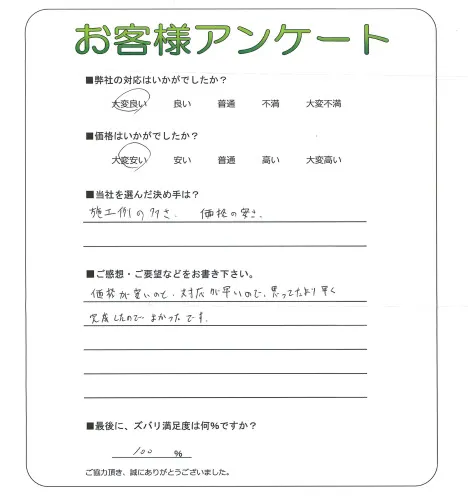 お客様アンケート
■弊社の対応はいかがでしたか？
大変良い 良い 普通 不満 大変不満
■価格はいかがでしたか？
大変安い 安い 普通 高い 大変高い
■当社を選んだ決め手は？
施工例の多さ、 価格の安さ、
■ご感想・ご要望などをお書き下さい。
価格が安いのと、対応が早いので、思ってたより早く
完成したので よかったです。
■最後に、ズバリ満足度は何％ですか？
100 ％
ご協力頂き、誠にありがとうございました。